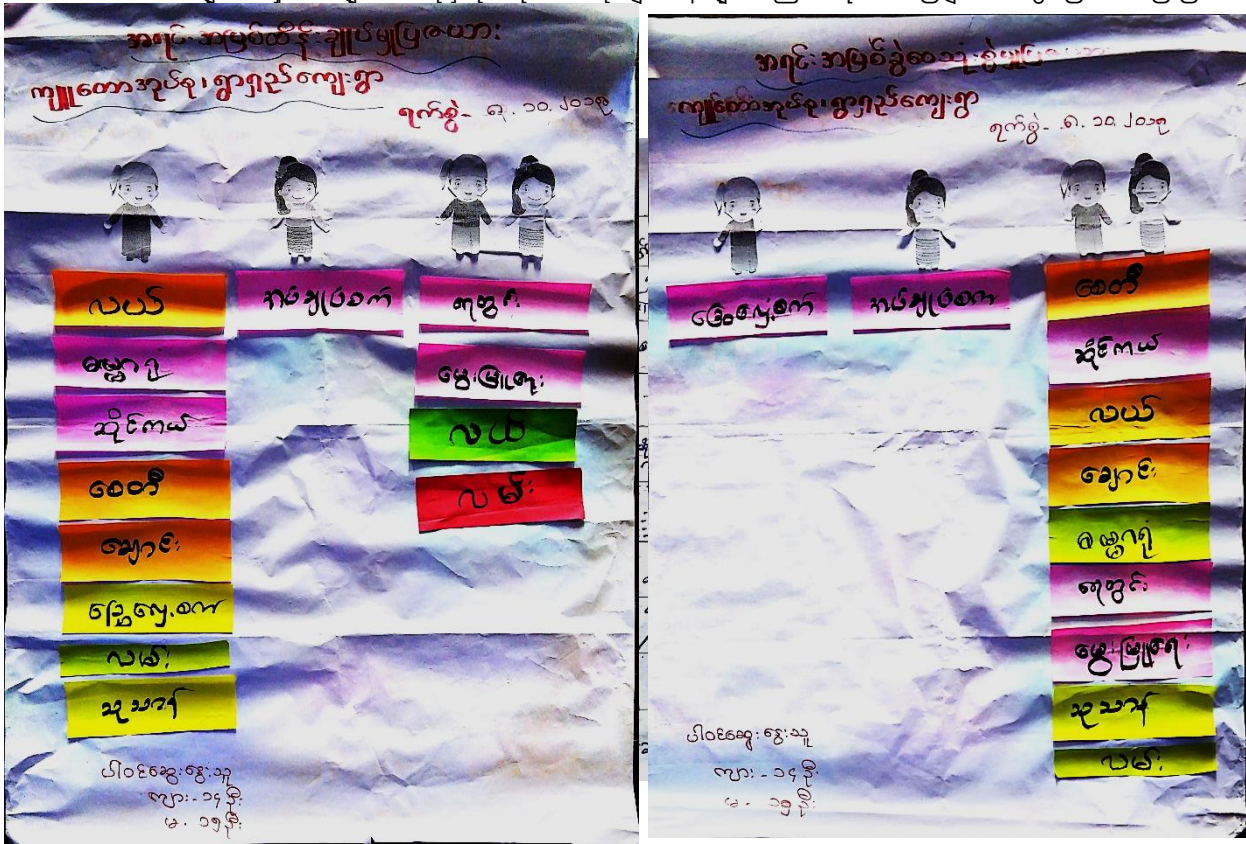 အရင်းအမြစ်ထိန်းချုပ်မှုပြဇယား
ကျူတောအုပ်စု၊ ရွာရှည်ကျေးရွာ
ရက်စွဲ- ၆.၁၀.၂၀၁၉
လယ်
ဓမ္မာရုံ
ဆိုင်ကယ်
စေတီ
ချောင်း
ခြွေလှေ့စက်
လမ်း
သုသာန်
အပ်ချုပ်စက်
ရေတွင်း
မွေးမြူရေး
လယ်
လမ်း
ပါဝင်ဆွေးနွေးသူ
ကျား - ၁၄ ဦး
မ - ၁၅ ဦး
အရင်းအမြစ်ခွဲဝေသုံးစွဲမှုပြဇယား
ကျူတောအုပ်စု၊ ရွာရှည်ကျေးရွာ
ရက်စွဲ - ၆.၁၀.၂၀၁၉
ခြွေလှေ့စက်
အပ်ချုပ်စက်
စေတီ
ဆိုင်ကယ်
လယ်
ချောင်း
ဓမ္မာရုံ
ရေတွင်း
မွေးမြူရေး
သုသာန်
လမ်း
ပါဝင်ဆွေးနွေးသူ
ကျား - ၁၄ ဦး
မ - ၁၅ ဦး